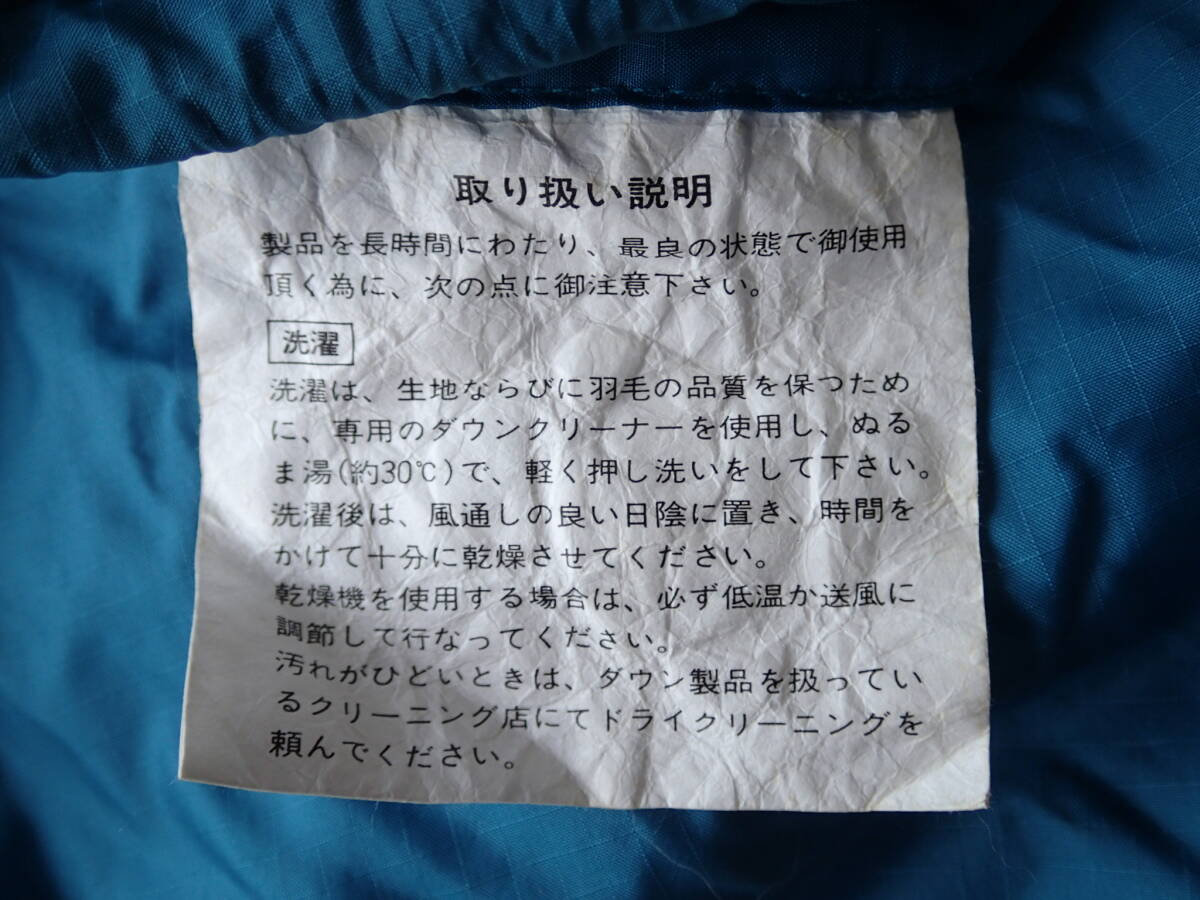 取り扱い説明
製品を長時間にわたり、最良の状態で御使用
頂く為に、次の点に御注意下さい。
洗濯
洗濯は、生地ならびに羽毛の品質を保つため
に、専用のダウンクリーナーを使用し、ぬる
ま湯(約30℃)で、軽く押し洗いをして下さい。
洗濯後は、風通しの良い日陰に置き、時間を
かけて十分に乾燥させてください。
乾燥機を使用する場合は、必ず低温か送風に
調節して行なってください。
汚れがひどいときは、ダウン製品を扱ってい
るクリーニング店にてドライクリーニングを
頼んでください。